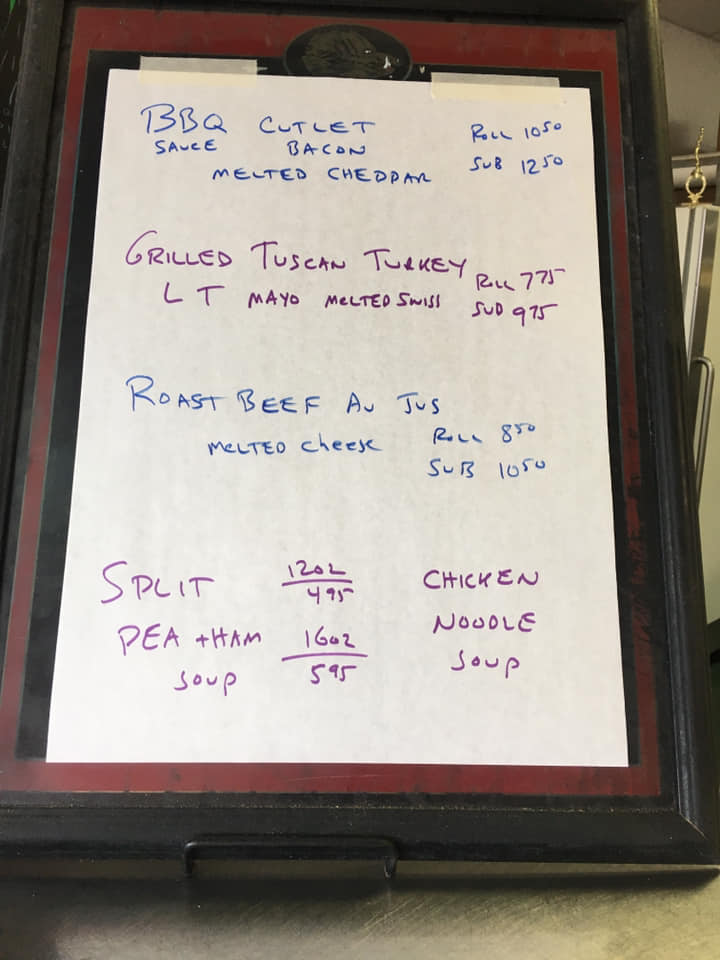 BBQ CUTLET ROLL 10 50
SAUCE BACON SUB 12 50
MELTED CHEDDAR
GRILLED TUSCAN TURKEY ROLL 7 75
L T MAYO MELTED SWISS SUB 9 75
ROAST BEEF AU JUS
MELTED CHEESE ROLL 8 50
SUB 10 50
SPLIT 12OZ CHICKEN
4 95
PEA + HAM 16OZ NOODLE
SOUP 5 95 SOUP